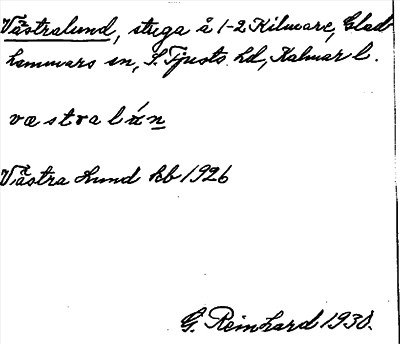 Västralund, stuga å 1-2 Kilmare, Glad-
hammars sn, S. Tjusts hd, Kalmar l.
væstralún
Västra Lund kb 1926
G. Reinhard 1930.